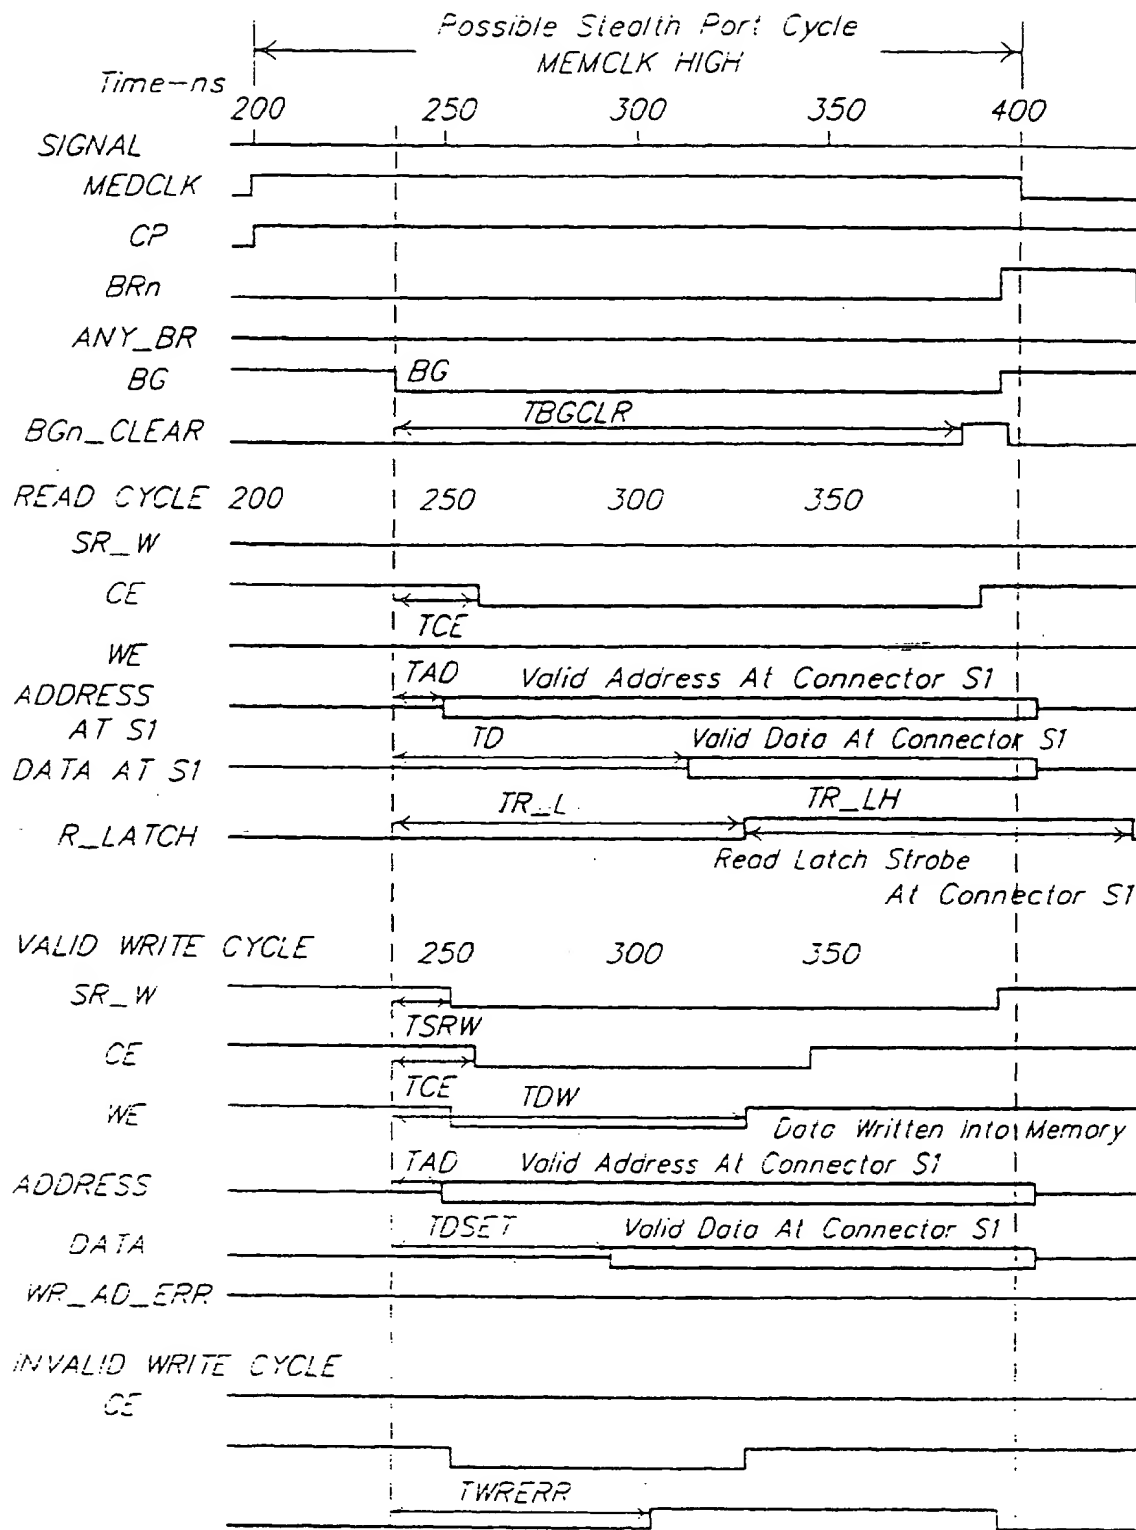 Possible Stealth Port Cycle
MEMCLK HIGH
Time-ns
200 250 300 350 400
SIGNAL
MEDCLK
CP
BRn
ANY_BR
BG BG
TBGCLR
BGn_CLEAR
READ CYCLE 200 250 300 350
SR_W
CE
TCE
WE
TAD Valid Address At Connector S1
ADDRESS
AT S1
TD Valid Data At Connector S1
DATA AT S1
TR_L TR_LH
R_LATCH
Read Latch Strobe
At Connector S1
VALID WRITE CYCLE 250 300 350
SR_W
TSRW
CE
TCE TDW
WE
Data Written Into Memory
TAD Valid Address At Connector S1
ADDRESS
TDSET Valid Data At Connector S1
DATA
WR_AD_ERR
INVALID WRITE CYCLE
CE
TWRERR